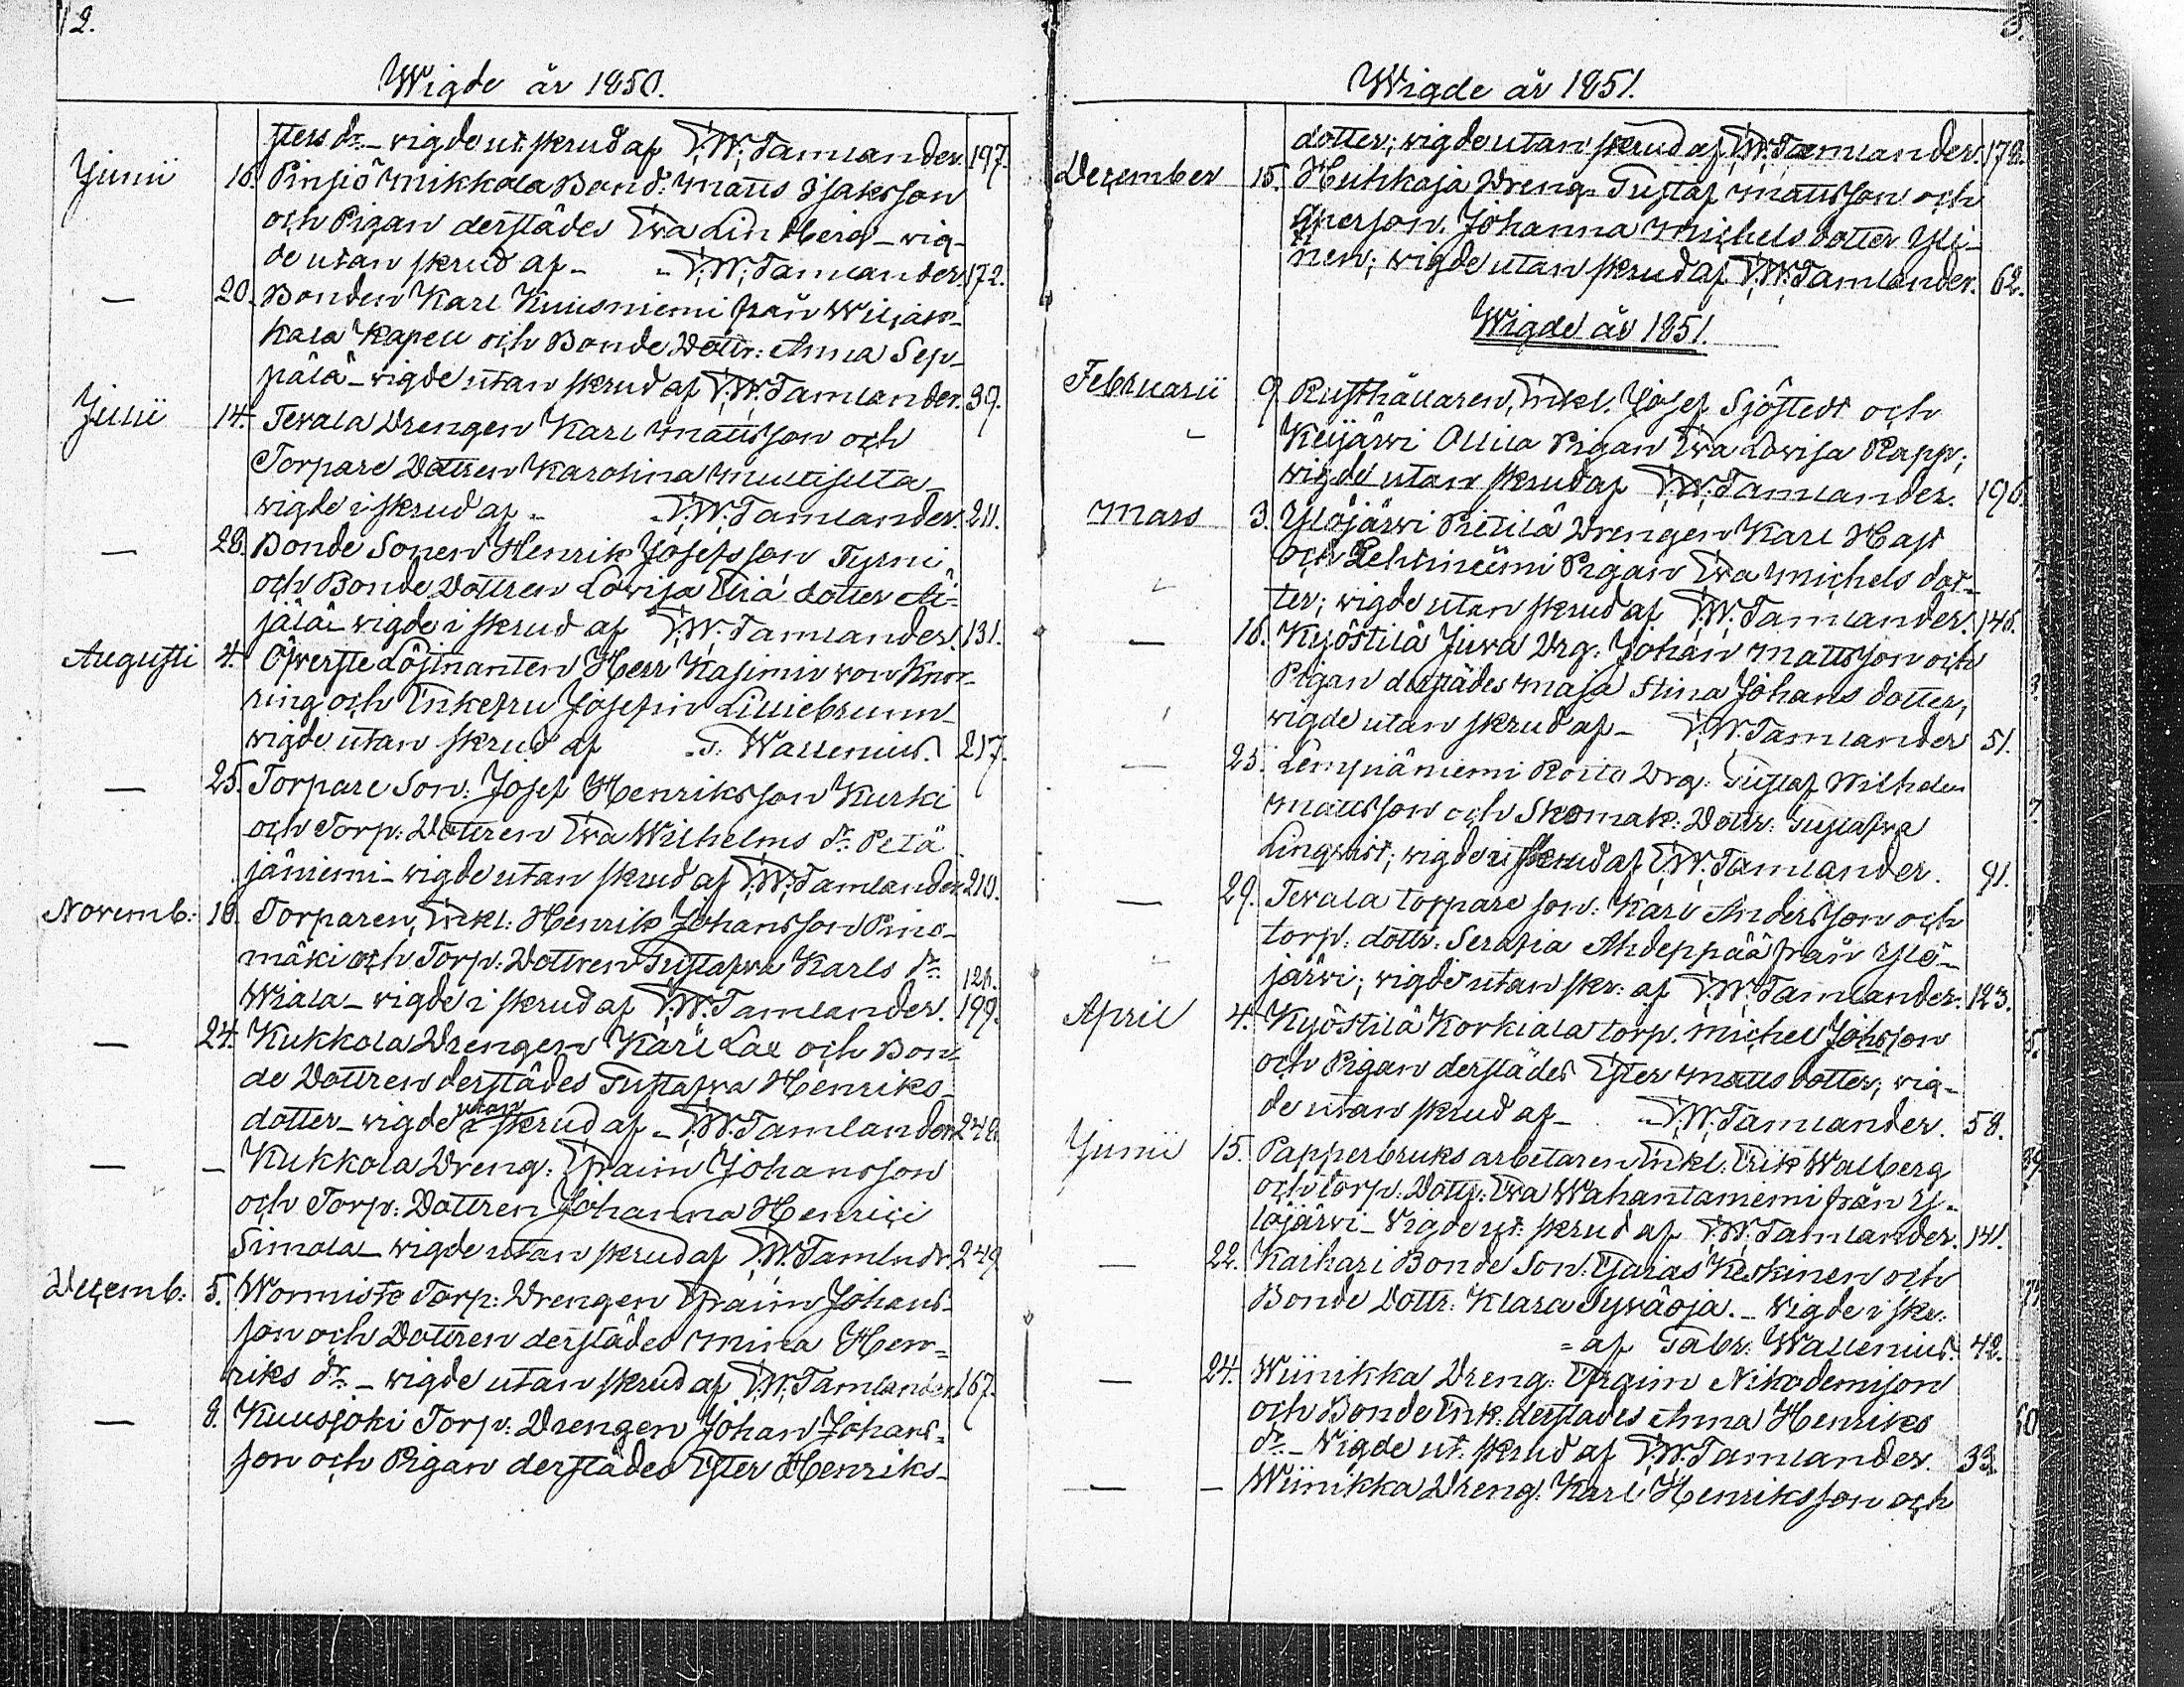 2.
Wigde år 1850.
sters dr. - vigde ut. skrud af F.W. Tamlander. 197.
Junii 16. Pinsiö Mikkola Bond: Matts Isaksson
och Pigan derstädes Eva Lindberg - vig-
de utan skrud af - - F.W. Tamlander. 172.
— 20. Bonden Karl Kuusniemi från Wiljak-
kala Kapell och Bonde Dottr: Anna Sep-
pälä - vigde utan skrud af F.W. Tamlander. 39.
Julii 14. Tevala Drengen Karl Mattsson och
Torpare Dottren Karolina Multisilta -
vigde i skrud af - - F.W. Tamlander. 211.
— 28. Bonde Sonen Henrik Josefsson Tyrni
och Bonde Dottren Lovisa Eliæ dotter Äi-
jälä - vigde i skrud af F.W. Tamlander. 131.
Augusti 4. Öfverste Löjtnanten Herr Kasimir von Knor-
ring och Enkefru Josefin Lilliebrunn -
vigde utan skrud af - G. Wallenius. 217.
— 25. Torpare Son: Josef Henriksson Kurki
och Torp: Dottren Eva Wilhelms dr. Petä
jäniemi - vigde utan skrud af F.W. Tamlander. 210.
Novemb: 10. Torparen, Enkl: Henrik Johansson Pino-
mäki och Torp: Dottren Gustafva Karls dr. 128.
Wiala - vigde i skrud af F.W. Tamlander. 199.
— 24. Kukkola Drengen Karl Lax och Bon-
de Dottren derstädes Gustafva Henriks-
dotter - vigde utan skrud af - F.W. Tamlander 248.
— — Kukkola Dreng: Efraim Johansson
och Torp: Dottren Johanna Henrici
Simola - vigde utan skrud af F.W. Tamlndr. 249
Decemb: 5. Wormisto Torp: Drengen Efraim Johans-
son och Dottren derstädes Mina Hen-
riks dr. - vigde utan skrud af F.W. Tamlander. 167.
— 8. Kuusjoki Torp: Drengen Johan Johans-
son och Pigan derstädes Ester Henriks-
3.
Wigde år 1851.
dotter; vigde utan skrud af F.W. Tamlander. 178.
December 15. Huhkaja Dreng: Gustaf Mattsson och
qvinsperson. Johanna Michels dotter Yli-
nen; vigde utan skrud af F.W. Tamlander. 62.
Wigde år 1851.
Februarii 9 Rusthållaren, Enkl. Josef Sjöstedt och
Keijärvi Ollila Pigan Eva Lovisa Rapp;
vigde utan skrud af F.W. Tamlander. 196.
Mars 3. Ylöjärvi Pietilä Drengen Karl Hast
och Lehtiniemi Pigan Eva Michels dot-
ter; vigde utan skrud af F.W. Tamlander. 145.
— 16. Kyöstilä Juva Drg: Johan Mattsson och
Pigan derstädes Maja Stina Johans dotter,
vigde utan skrud af - F.W. Tamlander 51.
— 23. Lempiäniemi Drg: Gustaf Wilhelm
Mattsson och Skomak: Dottr: Gustafva
Linqvist; vigde i skrud af F.W. Tamlander. 91.
— 29. Tevala torpare son: Karl Andersson och
torp: dottr: Serafia Ahdeppää från Ylö-
järvi; vigde utan skr: af F.W. Tamlander. 123.
April 4. Kyöstilä Korkiala torp. Michel Johsson
och Pigan derstädes Ester Matts dotter; vig-
de utan skrud af - - F.W. Tamlander. 58.
Junii 15. Papperbruks arbetaren Enkl: Erik Walberg
och torp: Dottr: Eva Wahantaniemi från Y-
löjärvi - Vigde ut. skrud af F.W. Tamlander. 141.
— 22. Kaihari Bonde Son: Esaias Keskinen och
Bonde Dottr: Klara Syväoja. - Vigde i skr:
= af Gabr: Wallenius. 42.
— 24. Wiinikka Dreng: Efraim Nikodemison
och Bonde Enk: derstädes Anna Henriks
dr. - Vigde ut. skrud af F.W. Tamlander. 33.
— — Wiinikka Dreng: Karl Henriksson och